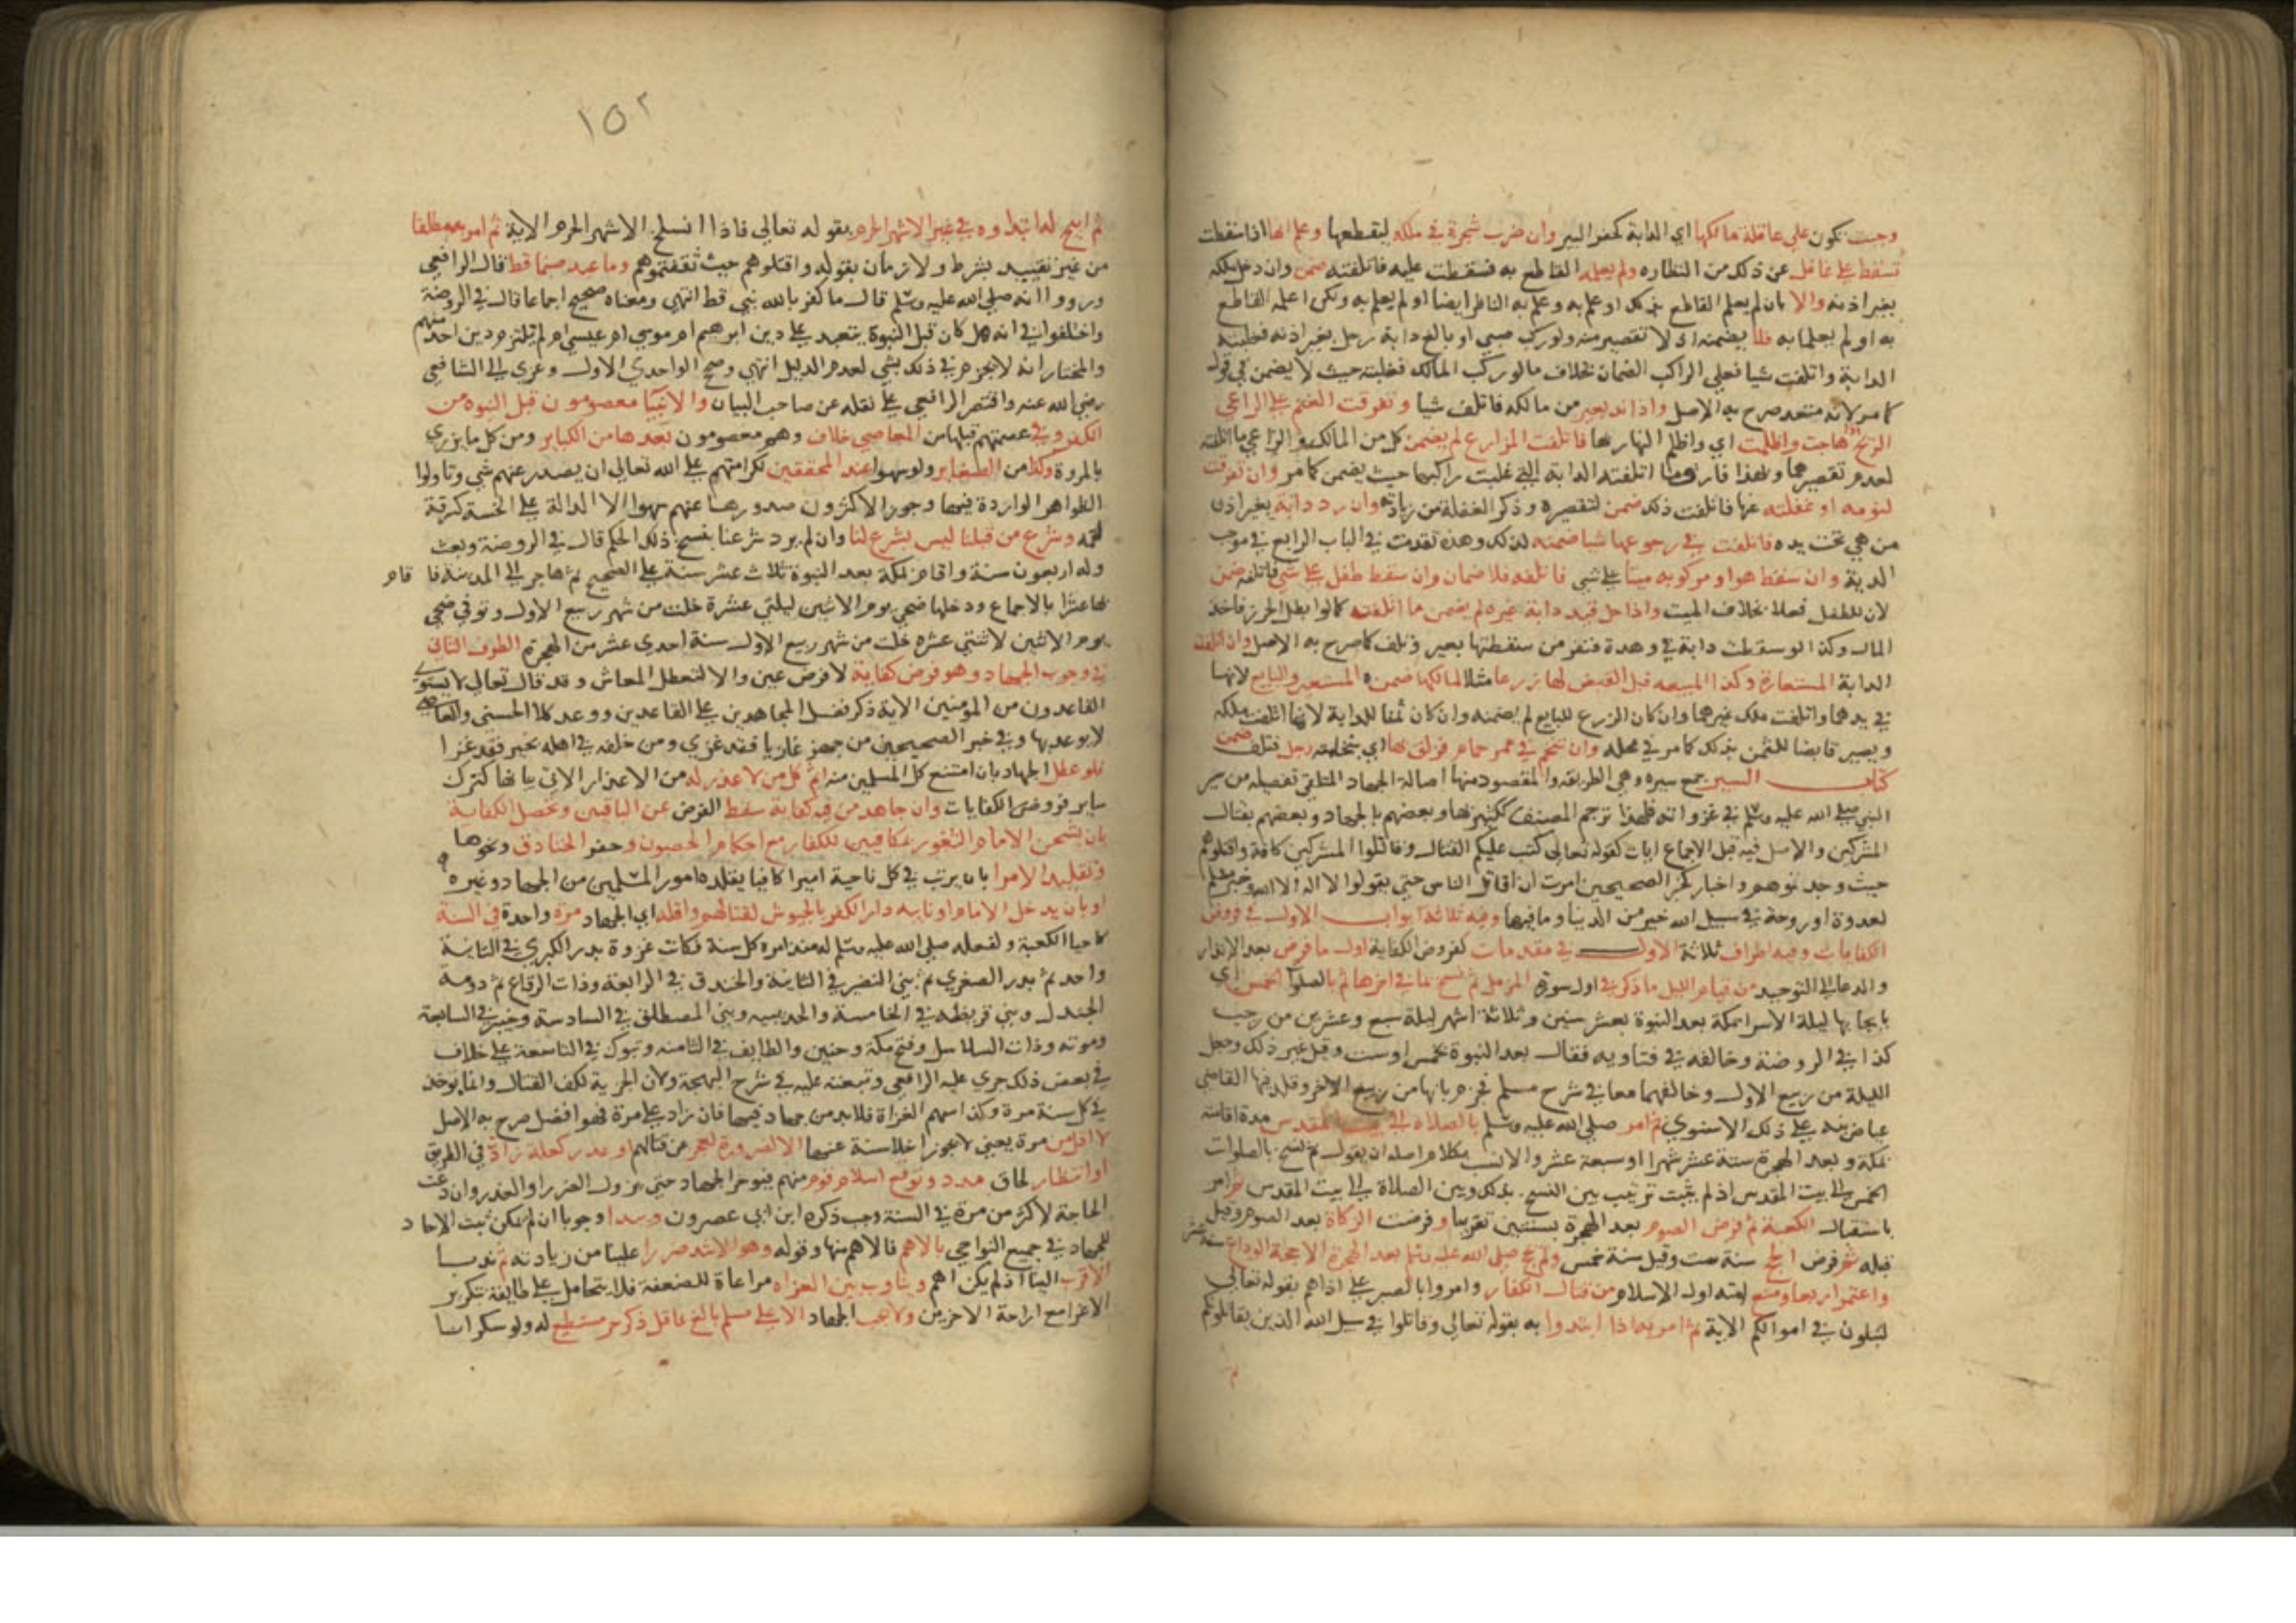 وحيث تكون على عاقلة مالكها اي الدابة كحفر البير وان ضرب شجرة في ملكه ليقطعها وعلم انها اذا سقطت
تسقط على غافل عن ذلك من النظاره ولم يعلمه القاطع به فسقطت عليه فاتلفته ضمن وان دخل ملكه
بغير اذنه والا بان لم يعلم القاطع بذلك او علم به وعلم به الناظر ايضا او لم يعلم به ولكن اعلمه القاطع
به او لم يعلما به فلا يضمنه اذ لا تقصير منه ولو ركب صبي او بالغ دابة رجل بغير اذنه فغلبته
الدابة واتلفت شيا فعلى الراكب الضمان بخلاف ما لو ركب المالك فغلبته حيث لا يضمن في قول
كما مر لانه متعد صرح به الاصل واذا ند بعير من مالكه فاتلف شيا وتفرقت الغنم على الراعي
لريح هاجت واظلمت اي واظلم النهار بها فاتلفت المزارع لم يضمن كل من المالك والراعي ما اتلفته
لعدم تقصيرهما وبهذا فارق ما اتلفته الدابة التي غلبت راكبها حيث يضمن كما مر وان تفرقت
لنومه او غفلته عنها فاتلفت ذلك ضمن لتقصيره وذكر الغفلة من زيادته وان رد دابة بغير اذن
من هي تحت يده فاتلفت في رجوعها شيا ضمنه لذلك وهذه تقدمت في الباب الرابع في موجب
الدية وان سقط هو او مركوبه ميتا على شي فاتلفه فلا ضمان وان سقط طفل على شي فاتلفه ضمن
لان للطفل فعلا بخلاف الميت واذا حل قيد دابة غيره لم يضمن ما اتلفته كما لو ابطل الحرز فاخذ
المال وكذا لو سقطت دابة في وهدة فنفر من سقطتها بعير وتلف كما صرح به الاصل وان اتلفت
الدابة المستعارة وكذا المبيعه قبل القبض لها زرعا مثلا لمالكها ضمنه المستعير والبايع لانها
في يدهما واتلفت ملك غيرهما وان كان الزرع للبايع لم يضمنه وان كان ثمنا للدابة لانها اتلفت ملكه
ويصير قابضا للثمن بذلك كما مر في محله وان تنخم في ممر حمام فزلق بها اي بنخامته رجل فتلف ضمن
كتاب السير جمع سيره وهي الطريقه والمقصود منها اصالة الجهاد المتلقي تفصيله من سير
النبي صلى الله عليه وسلم في غزواته فلهذا ترجم المصنف ككثير بها وبعضهم بالجهاد وبعضهم بقتال
المشركين والاصل فيه قبل الاجماع ايات كقوله تعالى كتب عليكم القتال وقاتلوا المشركين كافة واقتلوهم
حيث وجدتموهم واخبار كخبر الصحيحين امرت ان اقاتل الناس حتي يقولوا لا اله الا الله وخبر مسلم
لغدوة او روحة في سبيل الله خير من الدنيا وما فيها وفيه ثلاثة ابواب الاول في فروض
الكفايات وفيه اطراف ثلاثة الاول في مقدمات كفروض الكفاية اول ما فرض بعد الانذار
والدعا الي التوحيد من قيام الليل ما ذكر في اول سورة المزمل ثم نسخ بما في اخرها ثم بالصلوات الخمس اي
بايجابها ليلة الاسرا بمكة بعد النبوة بعشر سنين وثلاثة اشهر ليلة سبع وعشرين من رجب
كذا في الروضة وخالفه في فتاويه فقال بعد النبوة بخمس او ست وقيل غير ذلك وجعل
الليلة من ربيع الاول وخالفهما معا في شرح مسلم فجزم بانها من ربيع الاخر وقلد فيها القاضي
عياض نبه على ذلك الاسنوي ثم امر صلى الله عليه وسلم بالصلاة الي بيت المقدس مدة اقامته
بمكة وبعد الهجرة ستة عشر شهرا او سبعة عشر والانسب بكلام اصله ان يقول ثم نسخ بالصلوات
الخمس الي بيت المقدس اذ لم يثبت ترتيب بين النسخ بذلك وبين الصلاة الي بيت المقدس ثم امر
باستقبال الكعبة ثم فرض الصوم بعد الهجرة بسنتين تقريبا وفرضت الزكاة بعد الصوم وقيل
قبله ثم فرض الحج سنة ست وقيل سنة خمس ولم يحج صلى الله عليه وسلم بعد الهجرة الا حجة الوداع سنة عشر
واعتمر اربعا ومنع امته اول الاسلام من قتال الكفار وامروا بالصبر على اذاهم بقوله تعالى
لتبلون في اموالكم الاية ثم امر بها اذا ابتدوا به بقوله تعالى وقاتلوا في سبيل الله الذين يقاتلونكم
١٥٢
ثم ابيح له ابتداوه في غير الاشهر الحرم بقوله تعالى فاذا انسلخ الاشهر الحرم الاية ثم امر به مطلقا
من غير تقييد بشرط ولا زمان بقوله واقتلوهم حيث ثقفتموهم وما عبد صنما قط قال الرافعي
ورووا انه صلى الله عليه وسلم قال ما كفر بالله نبي قط انتهى ومعناه صحيح اجماعا قال في الروضة
واختلفوا في انه هل كان قبل النبوة يتعبد على دين ابرهيم ام موسى ام عيسى ام لم يلتزم دين احد منهم
والمختار انه لا يجزم في ذلك بشي لعدم الدليل انتهي وصحح الواحدي الاول وعزي الي الشافعي
رضي الله عنه واقتصر الرافعي على نقله عن صاحب البيان والانبيا معصومون قبل النبوه من
الكفر وفي عصمتهم قبلها من المعاصي خلاف وهم معصومون بعدها من الكباير ومن كل ما يزري
بالمروة وكذا من الصغاير ولو سهوا عند المحققين لكرامتهم على الله تعالى ان يصدر عنهم شي وتاولوا
الظواهر الواردة فيها وجوز الاكثرون صدورها عنهم سهوا الا الدالة على الخسة كسرقة
لقمه وشرع من قبلنا ليس بشرع لنا وان لم يرد شرعنا بنسخ ذلك الحكم قال في الروضة وبعث
وله اربعون سنة واقام بمكة بعد النبوة ثلاث عشر سنة على الصحيح ثم هاجر الي المدينة فا قام
بها عشرا بالاجماع ودخلها ضحي يوم الاثنين لثنتي عشرة خلت من شهر ربيع الاول وتوفي ضحي
يوم الاثنين لاثنتي عشره خلت من شهر ربيع الاول سنة احدى عشر من الهجرة الطرف الثاني
في وجوب الجهاد وهو فرض كفاية لا فرض عين والا لتعطل المعاش وقد قال تعالى لا يستوي
القاعدون من المؤمنين الاية ذكر فضل المجاهدين على القاعدين ووعد كلا الحسنى والعاصي
لا يوعد بها وفي خبر الصحيحين من جهز غازيا فقد غزى ومن خلفه في اهله بخير فقد غزا
فلو عطل الجهاد بان امتنع كل المسلمين منه اثم كل من لا عذر له من الاعذار الاتي بيانها كترك
ساير فروض الكفايات وان جاهد من فيه كفاية سقط الفرض عن الباقين وتحصل الكفاية
بان يشحن الامام الثغور بمكافيين للكفار مع احكام الحصون وحفر الخنادق ونحوها
وتقليد الامرا بان يرتب في كل ناحية اميرا كافيا يقلده امور المسلمين من الجهاد وغيره
او بان يدخل الامام او نايبه دار الكفر بالجيوش لقتالهم واقله اي الجهاد مرة واحدة في السنة
كاحيا الكعبة ولفعله صلى الله عليه وسلم له منذ امر به كل سنة فكانت غزوة بدر الكبرى في الثانية
واحد ثم بدر الصغرى ثم بني النضير في الثالثة والخندق في الرابعة وذات الرقاع ثم دومة
الجندل وبني قريظة في الخامسة والحديبيه وبني المصطلق في السادسة وخيبر في السابعة
وموته وذات السلاسل وفتح مكة وحنين والطايف في الثامنه وتبوك في التاسعة على خلاف
في بعض ذلك جرى عليه الرافعي وتبعته عليه في شرح البهجة ولان الجزية لكف القتال وانما يوخذ
في كل سنة مرة وكذا اسهم الغزاة فلا بد من جهاد فيها فان زاد على مرة فهو افضل صرح به الاصل
لا اقل من مرة يعني لا يجوز اخلا سنة عنها الا لضرورة لعجز عن قتالهم او عذر كعلة زاد في الطريق
او انتظار لحاق مدد وتوقع اسلام قوم منهم فيوخر الجهاد حتي يزول الضرر او العذر وان دعت
الحاجة لاكثر من مرة في السنة وجب ذكره ابن ابي عصرون ويبدا وجوبا ان لم يمكن بث الاحاد
للجهاد في جميع النواحي بالاهم فالاهم منها وقوله وهو الاشد ضررا علينا من زيادته ثم ندبا
الاقرب الينا اذ لم يكن اهم ويناوب بين الغزاه مراعاة للضعفة فلا يتحامل على طايفة بتكرير
الاغزا مع اراحة الاخرين ولا يجب الجهاد الا على مسلم بالغ عاقل ذكر حر مستطيع له ولو سكرانا